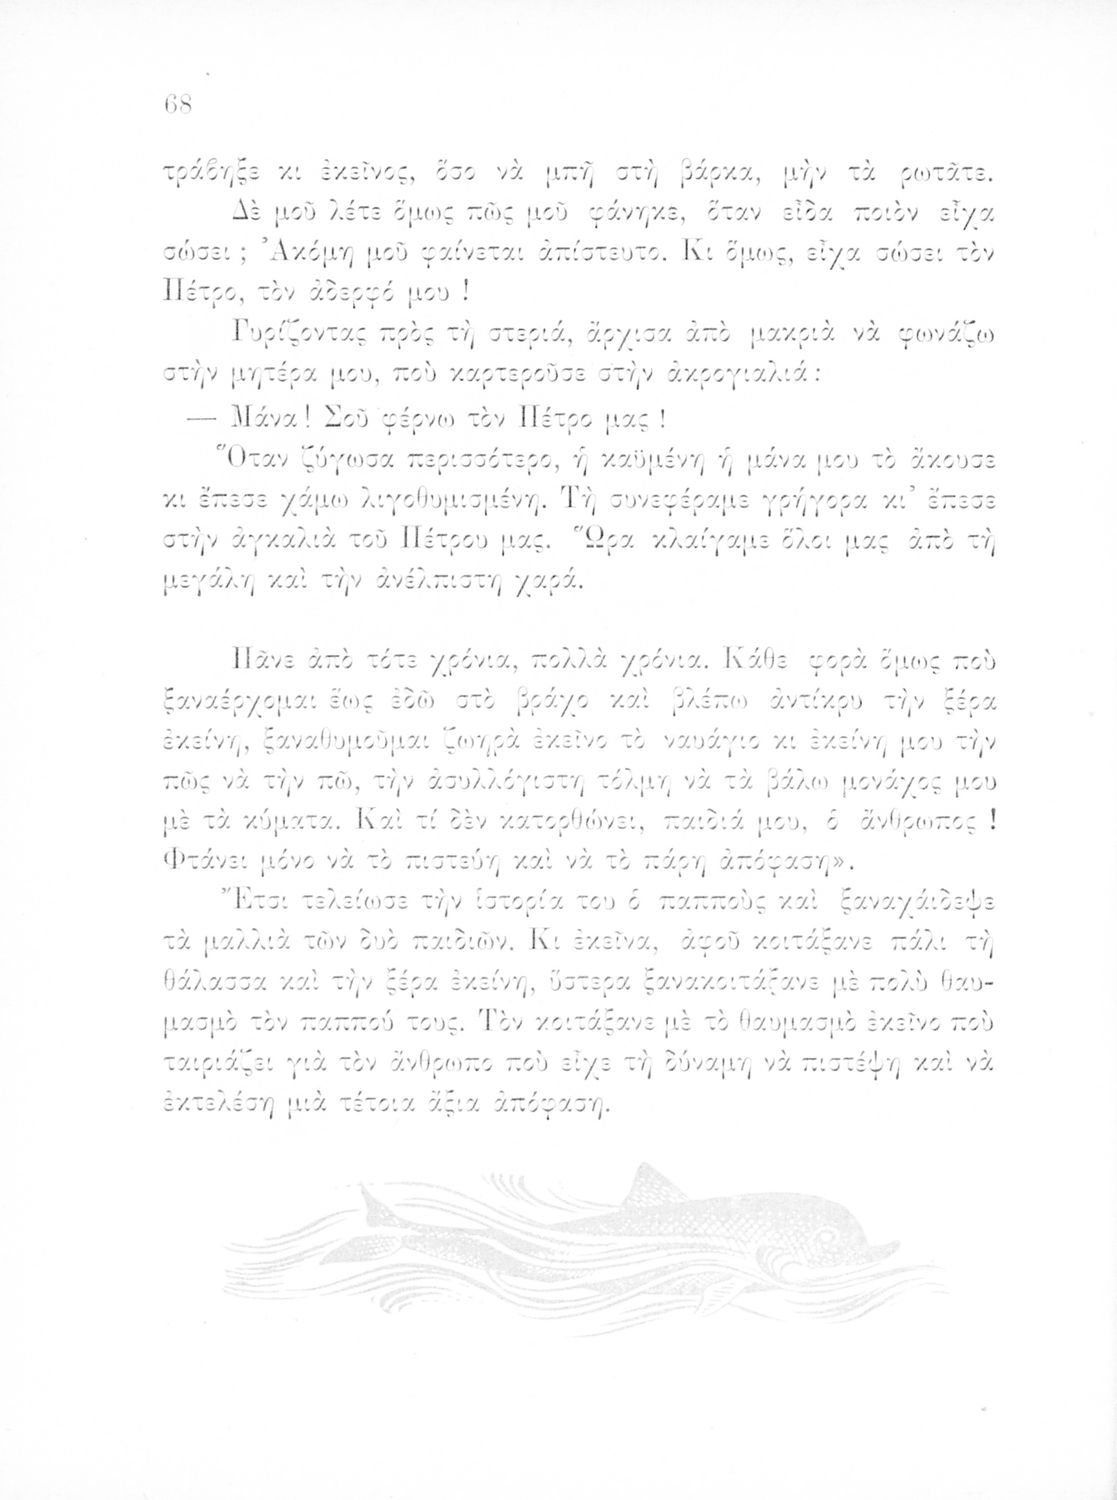 68
τράβηξε κι ἐκεῖνος, ὅσο νὰ μπῆ στὴ βάρκα, μὴν τὰ ρωτᾶτε.
Δὲ μοῦ λέτε ὅμως πῶς μοῦ φάνηκε, ὅταν εἶδα ποιὸν εἶχα
σώσει ; Ἀκόμη μοῦ φαίνεται ἀπίστευτο. Κι ὅμως, εἶχα σώσει τὸν
Πέτρο, τὸν ἀδερφό μου !
Γυρίζοντας πρὸς τὴ στεριά, ἄρχισα ἀπὸ μακριὰ νὰ φωνάζω
στὴν μητέρα μου, ποὺ καρτεροῦσε στὴν ἀκρογιαλιά :
— Μάνα ! Σοῦ φέρνω τὸν Πέτρο μας !
Ὅταν ζύγωσα περισσότερο, ἡ καϋμένη ἡ μάνα μου τὸ ἄκουσε
κι ἔπεσε χάμω λιγοθυμισμένη. Τὴ συνεφέραμε γρήγορα κι’ ἔπεσε
στὴν ἀγκαλιὰ τοῦ Πέτρου μας. Ὥρα κλαίγαμε ὅλοι μας ἀπὸ τὴ
μεγάλη καὶ τὴν ἀνέλπιστη χαρά.
Πᾶνε ἀπὸ τότε χρόνια, πολλὰ χρόνια. Κάθε φορὰ ὅμως ποὺ
ξαναέρχομαι ἕως ἐδῶ στὸ βράχο καὶ βλέπω ἀντίκρυ τὴν ξέρα
ἐκείνη, ξαναθυμοῦμαι ζωηρὰ ἐκεῖνο τὸ ναυάγιο κι ἐκείνη μου τὴν
πῶς νὰ τὴν πῶ, τὴν ἀσυλλόγιστη τόλμη νὰ τὰ βάλω μονάχος μου
μὲ τὰ κύματα. Καὶ τί δὲν κατορθώνει, παιδιά μου, ὁ ἄνθρωπος !
Φτάνει μόνο νὰ τὸ πιστεύη καὶ νὰ τὸ πάρη ἀπόφαση».
Ἔτσι τελείωσε τὴν ἱστορία του ὁ παπποὺς καὶ ξαναχάιδεψε
τὰ μαλλιὰ τῶν δυὸ παιδιῶν. Κι ἐκεῖνα, ἀφοῦ κοιτάξανε πάλι τὴ
θάλασσα καὶ τὴν ξέρα ἐκείνη, ὕστερα ξανακοιτάξανε μὲ πολὺ θαυ-
μασμὸ τὸν παππού τους. Τὸν κοιτάξανε μὲ τὸ θαυμασμὸ ἐκεῖνο ποὺ
ταιριάζει γιὰ τὸν ἄνθρωπο ποὺ εἶχε τὴ δύναμη νὰ πιστέψη καὶ νὰ
ἐκτελέση μιὰ τέτοια ἄξια ἀπόφαση.